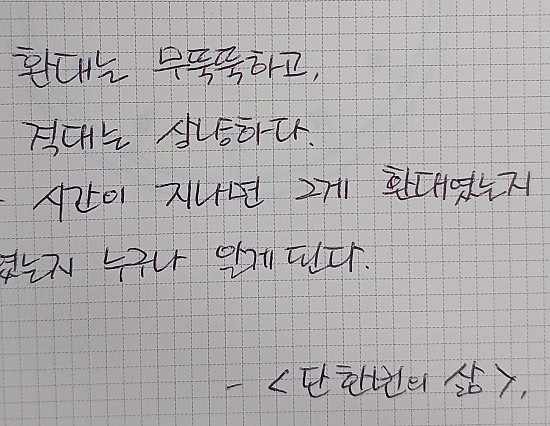 환대는 무뚝뚝하고,
적대는 상냥하다.
시간이 지나면 그게 환대였는지
였는지 누구나 알게 된다.
- <단 한번의 삶>,